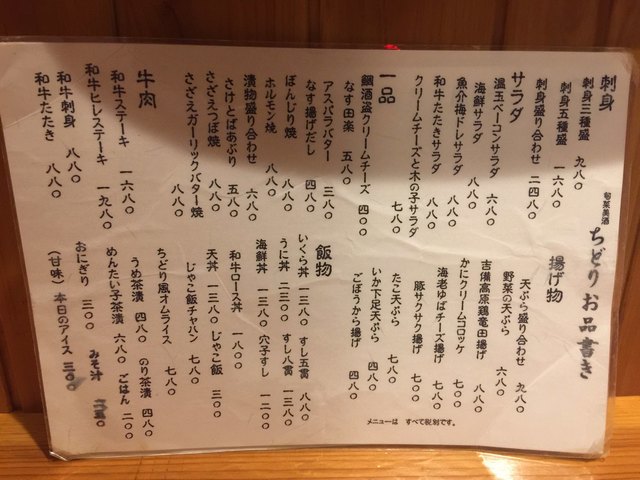 旬菜美酒 ちどりお品書き
刺身
刺身三種盛 九八〇
刺身五種盛 一六八〇
刺身盛り合わせ 二四八〇
サラダ
温玉ベーコンサラダ 六八〇
海鮮サラダ 八八〇
魚介梅ドレサラダ 八八〇
和牛たたきサラダ 八八〇
クリームチーズと木の子サラダ 七八〇
一品
鯛酒盗クリームチーズ 四〇〇
なす田楽 五八〇
アスパラバター 三八〇
なす揚げだし 四八〇
ぼんじり焼 八八〇
ホルモン焼 八八〇
漬物盛り合わせ 六八〇
さけとばあぶり 五八〇
さざえつぼ焼 八八〇
さざえガーリックバター焼 八八〇
牛肉
和牛ステーキ 一六八〇
和牛ヒレステーキ 一九八〇
和牛刺身 八八〇
和牛たたき 八八〇
揚げ物
天ぷら盛り合わせ 九八〇
野菜の天ぷら 六八〇
吉備高原鶏竜田揚げ 八八〇
かにクリームコロッケ 七〇〇
海老ゆばチーズ揚げ 七八〇
豚サクサク揚げ 七〇〇
たこ天ぷら 七八〇
いか下足天ぷら 四八〇
ごぼうから揚げ 四八〇
飯物
いくら丼 一三八〇 すし五貫 八八〇
うに丼 二三八〇 すし八貫 一三八〇
海鮮丼 一三八〇 穴子すし 一二〇〇
和牛ロース丼 一八〇〇
天丼 一三八〇 じゃこ飯 三〇〇
じゃこ飯チャハン 七八〇
ちどり風オムライス 七八〇
うめ茶漬 四八〇 のり茶漬 四八〇
めんたい子茶漬 六八〇 ごはん 二〇〇
おにぎり 三〇〇 みそ汁
(甘味) 本日のアイス 三〇〇
メニューは すべて税別です。